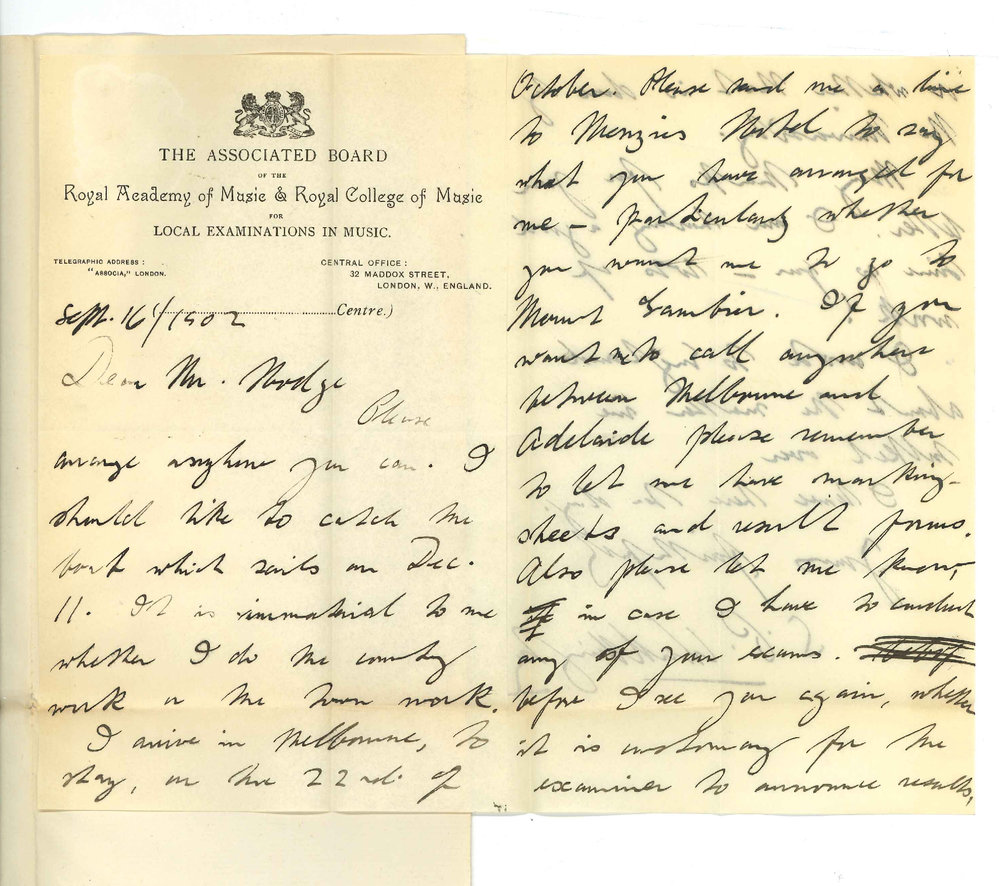 THE ASSOCIATED BOARD
OF THE
Royal Academy of Music & Royal College of Music
FOR
LOCAL EXAMINATIONS IN MUSIC.
TELEGRAPHIC ADDRESS :
"ASSOCIA," LONDON.
CENTRAL OFFICE :
32 MADDOX STREET,
LONDON, W., ENGLAND.
Sept. 16/1902 (..............................Centre.)
Dear Mr. Hodge
Please
arrange anywhere you can. I
should like to catch the
boat which sails on Dec.
11. It is immaterial to me
whether I do the country
work or the town work.
I arrive in Melbourne, to
stay, on the 22nd. of
October. Please send me a line
to Menzies Hotel to say
what you have arranged for
me – particularly whether
you want me to go to
Mount Gambier. If you
want me to call anywhere
between Melbourne and
Adelaide please remember
to let me have marking-
sheets and result forms.
Also please let me know,
in case I have to conduct
any of your exams.
before I see you again, whether
it is customary for the
examiner to announce results,